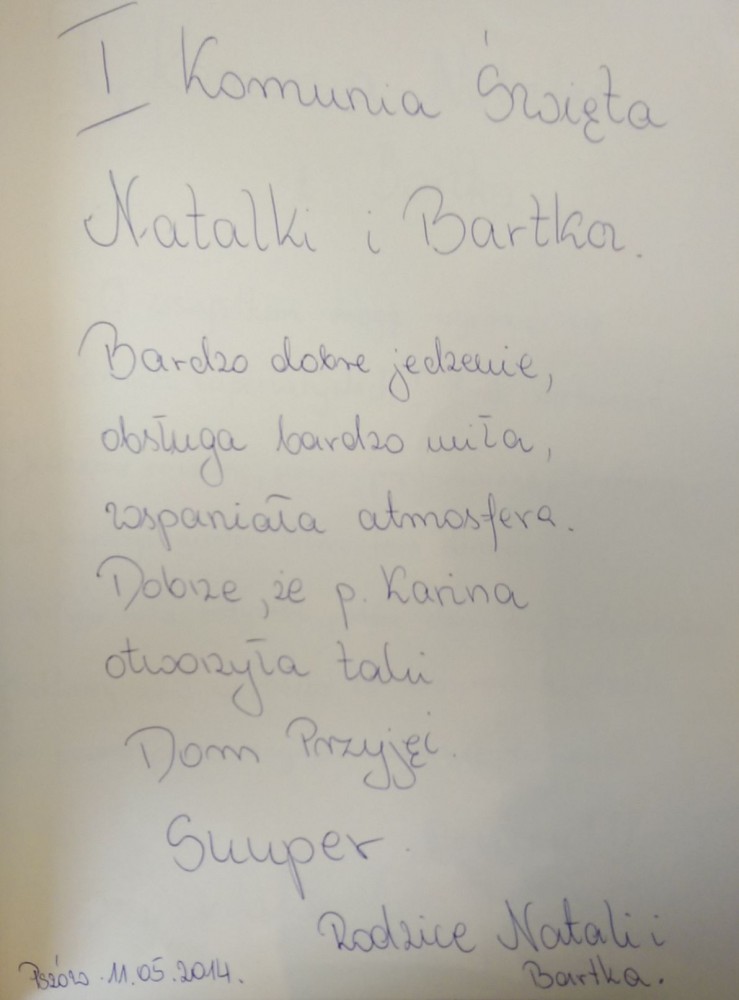 I Komunia Święta
Natalki i Bartka.
Bardzo dobre jedzenie,
obsługa bardzo miła,
wspaniała atmosfera.
Dobrze, że p. Karina
otworzyła taki
Dom Przyjęć.
Suuper.
Rodzice Natalii i
Bartka.
11.05.2014.